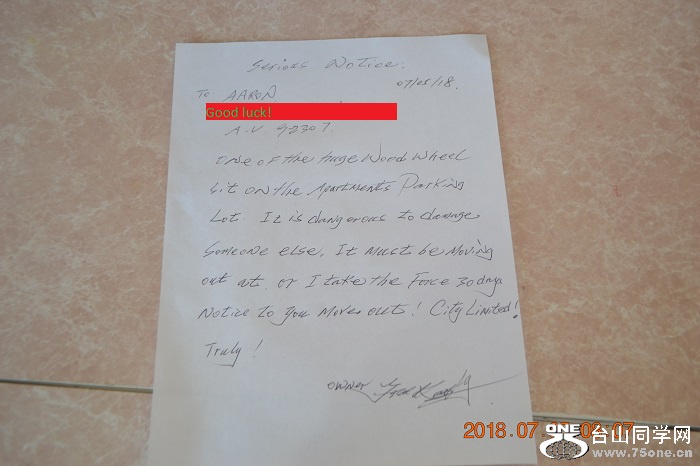 Serious Notice.
07/05/18.
To AARON
Good luck!
A.V 92307.
One of the huge Wood Wheel
sit on the Apartments Parking
Lot. It is dangerous to damage
someone else, It must be moving
out at. or I take the Force 30 days
Notice to you Moves out! City Limited!
Truly!
owner
2018.07.
ONE
台山同学网
www.75one.cn